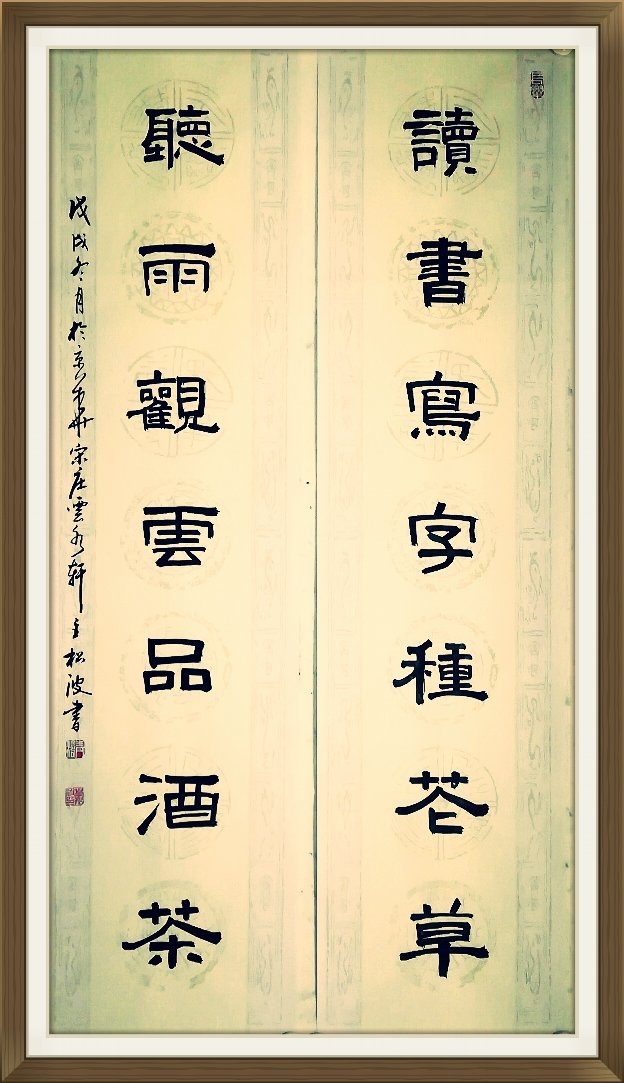 讀書寫字種花草
聽雨觀雲品酒茶
戊戌冬月於京華宋庄雲水軒主松波書